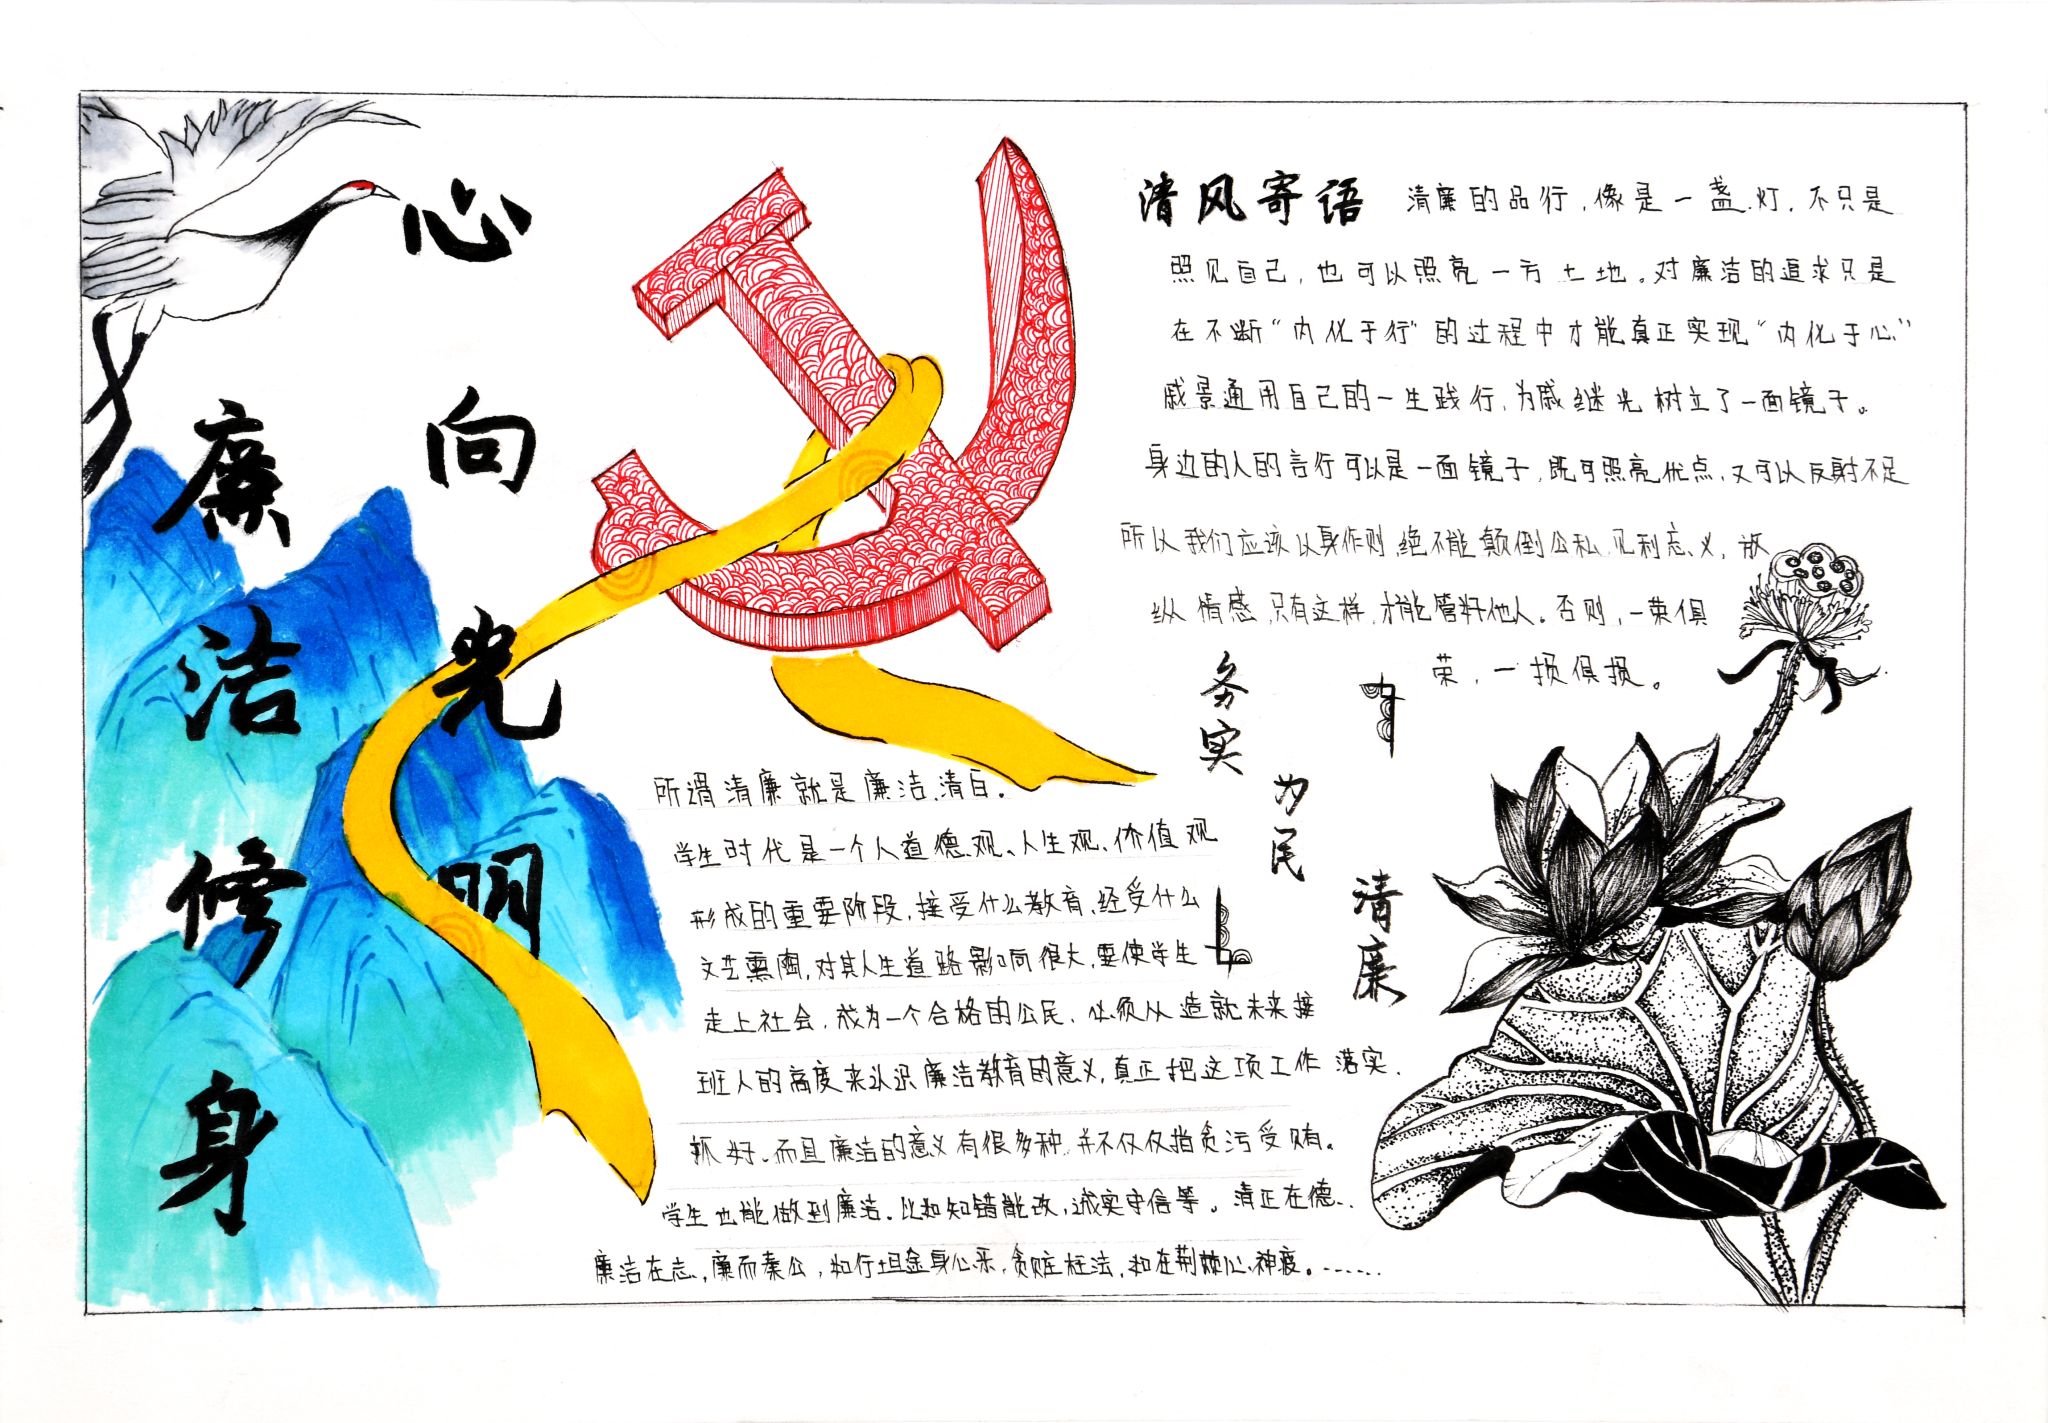 心向光明
廉洁修身
清风寄语
清廉的品行,像是一盏灯,不只是
照见自己,也可以照亮一方土地。对廉洁的追求只是
在不断“内化于行”的过程中才能真正实现“内化于心”
戚景通用自己的一生践行,为戚继光树立了一面镜子。
身边的人的言行可以是一面镜子,既可照亮优点,又可以反射不足
所以我们应该以身作则,绝不能颠倒公私,见利忘义,放
纵情感,只有这样,才能管好他人。否则,一荣俱
荣,一损俱损。
务实
为民
清廉
所谓清廉就是廉洁、清白。
学生时代是一个人道德观、人生观、价值观
形成的重要阶段,接受什么教育、经受什么
文艺熏陶,对其人生道路影响很大,要使学生
走上社会,成为一个合格的公民,必须从造就未来接
班人的高度来认识廉洁教育的意义,真正把这项工作落实、
抓好、而且廉洁的意义有很多种,并不仅仅指贪污受贿。
学生也能做到廉洁。比如知错能改,诚实守信等。清正在德、
廉洁在志,廉而奉公,如行坦途身心乐,贪赃枉法,如在荆棘心神疲。……